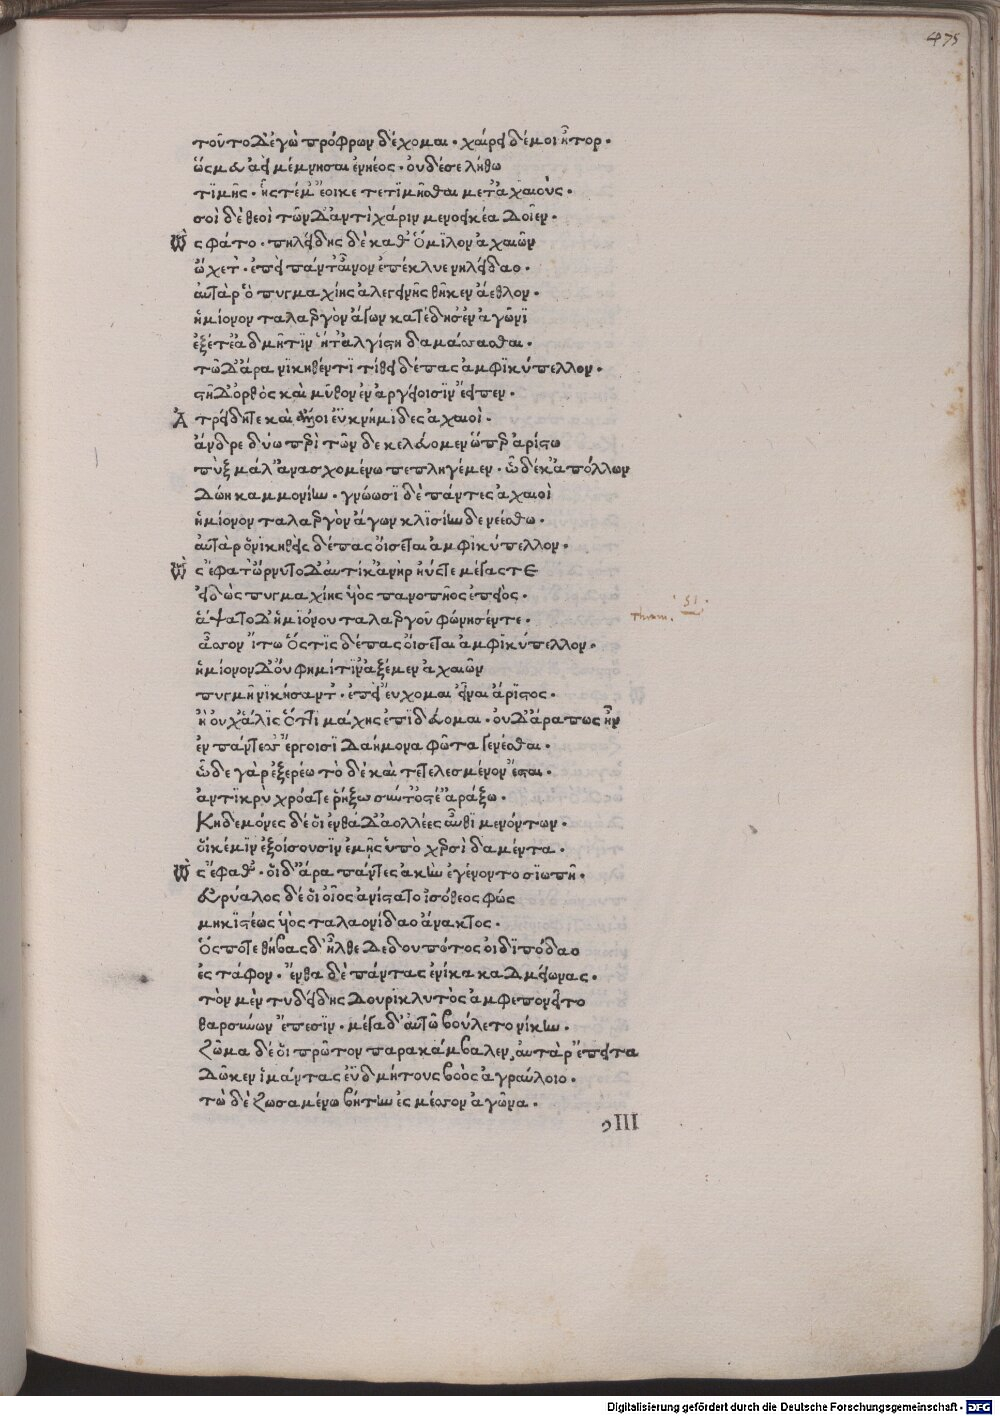 475
τοῦτο δ' ἐγὼ πρόφρων δέχομαι· χαίρει δέ μοι ἦτορ·
ὥς μευ ἀεὶ μέμνησαι ἐνηέος· οὐδέ σε λήθω
τιμῆς· ἧς τέ μ' ἔοικε τετιμῆσθαι μετ' ἀχαιούς·
σοὶ δὲ θεοὶ τῶνδ' ἀντὶ χάριν μενοεικέα δοῖεν·
Ὣς φάτο· πηλείδης δὲ καθ' ὅμιλον ἀχαιῶν
ᾤχετ'· ἐπεὶ πάντ' αἶνον ἐπέκλυε νηλείδαο·
αὐτὰρ ὁ πυγμαχίης ἀλεγεινῆς θῆκεν ἄεθλον·
ἡμίονον ταλαεργὸν ἄγων κατέδησ' ἐν ἀγῶνι
ἑξέτε' ἀδμῆτιν ἥτ' ἀλγίστη δαμάσασθαι·
τῷ δ' ἄρα νικηθέντι τίθει δέπας ἀμφικύπελλον·
στῆ δ' ὀρθὸς καὶ μῦθον ἐν ἀργείοισιν ἔειπεν·
Ἀτρείδη τε καὶ ἄλλοι ἐϋκνήμιδες ἀχαιοί·
ἄνδρε δύω περὶ τῶνδε κελεύομεν ὥπερ ἀρίστω
πὺξ μάλ' ἀνασχομένω πεπληγέμεν· ᾧ δέ κ' ἀπόλλων
δώη καμμονίην· γνώωσι δὲ πάντες ἀχαιοὶ
ἡμίονον ταλαεργὸν ἄγων κλισίηνδε νεέσθω·
αὐτὰρ ὁ νικηθεὶς δέπας οἴσεται ἀμφικύπελλον·
Ὣς ἔφατ' ὤρνυτο δ' αὐτίκ' ἀνὴρ ἠΰς τε μέγας τε
εἰδὼς πυγμαχίης υἱὸς πανοπῆος ἐπειός·
ἅψατο δ' ἡμιόνου ταλαεργοῦ φώνησέν τε·
ἆσσον ἴτω ὅστις δέπας οἴσεται ἀμφικύπελλον·
ἡμίονον δ' οὔ φημί τιν' ἀξέμεν ἀχαιῶν
πυγμῇ νικήσαντ'· ἐπεὶ εὔχομαι εἶναι ἄριστος·
ἦ οὐχ ἅλις ὅττι μάχης ἐπιδεύομαι· οὐδ' ἄρα πως ἦν
ἐν πάντεσσ' ἔργοισι δαήμονα φῶτα γενέσθαι·
ὧδε γὰρ ἐξερέω τὸ δὲ καὶ τετελεσμένον ἔσται·
ἀντικρὺ χρόα τε ῥήξω σύν τ' ὀστέ' ἀράξω·
Κηδεμόνες δέ οἱ ἐνθάδ' ἀολλέες αὖθι μενόντων·
οἵ κέ μιν ἐξοίσουσιν ἐμῆς ὑπὸ χερσὶ δαμέντα·
Ὣς ἔφαθ'· οἱ δ' ἄρα πάντες ἀκὴν ἐγένοντο σιωπῇ·
Εὐρύαλος δέ οἱ οἶος ἀνίστατο ἰσόθεος φώς
μηκιστέως υἱὸς ταλαονίδαο ἄνακτος·
ὅς ποτε θήβας δ' ἦλθε δεδουπότος οἰδιπόδαο
ἐς τάφον· ἔνθα δὲ πάντας ἐνίκα καδμείωνας·
τὸν μὲν τυδείδης δουρικλυτὸς ἀμφεπονεῖτο
θαρσύνων ἔπεσιν· μέγα δ' αὐτῷ βούλετο νίκην·
Ζῶμα δέ οἱ πρῶτον παρακάμβαλεν, αὐτὰρ ἔπειτα
δῶκεν ἱμάντας ἐϋδμήτους βοὸς ἀγραύλοιο·
τὼ δὲ ζωσαμένω βήτην ἐς μέσσον ἀγῶνα·
Digitalisierung gefördert durch die Deutsche Forschungsgemeinschaft - DFG